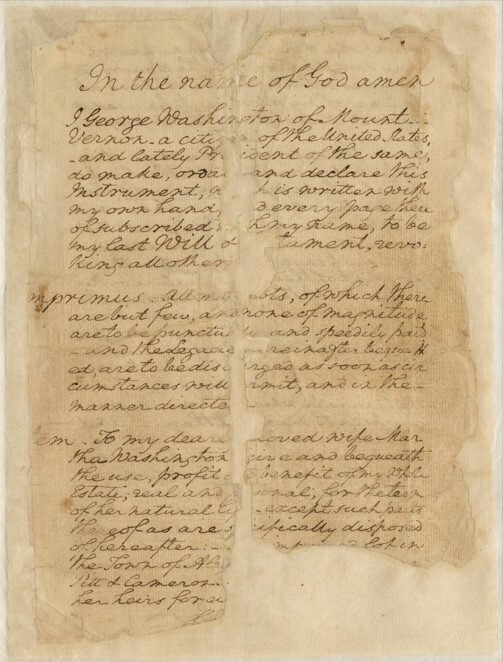 In the name of God amen
I George Washington of Mount
Vernon – a citi of the United States,
– and lately Pr ident of the same,
do make, orda and declare this
Instrument, w h is written with
my own hand, d every page there
of subscribed h my name, to be
my last Will & tament, revo-
king all other
mprimus. All my bts, of which there
are but few, and none of magnitude
are to be punctu ly and speedily paid
– and the Legacie reinafter bequeath
ed, are to be dis rged as soon as cir
cumstances will rmit, and in the –
manner directe
tem. To my dear loved wife Mar
tha Washington give and bequeath
the use, profit benefit of my whole
Estate, real and onal, for the term
of her natural li – except such parts
thereof as are s cifically disposed
of hereafter: – lot in
the Town of Al
Pitt & Cameron
her heirs for e